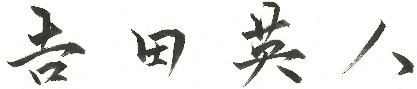 吉田英人